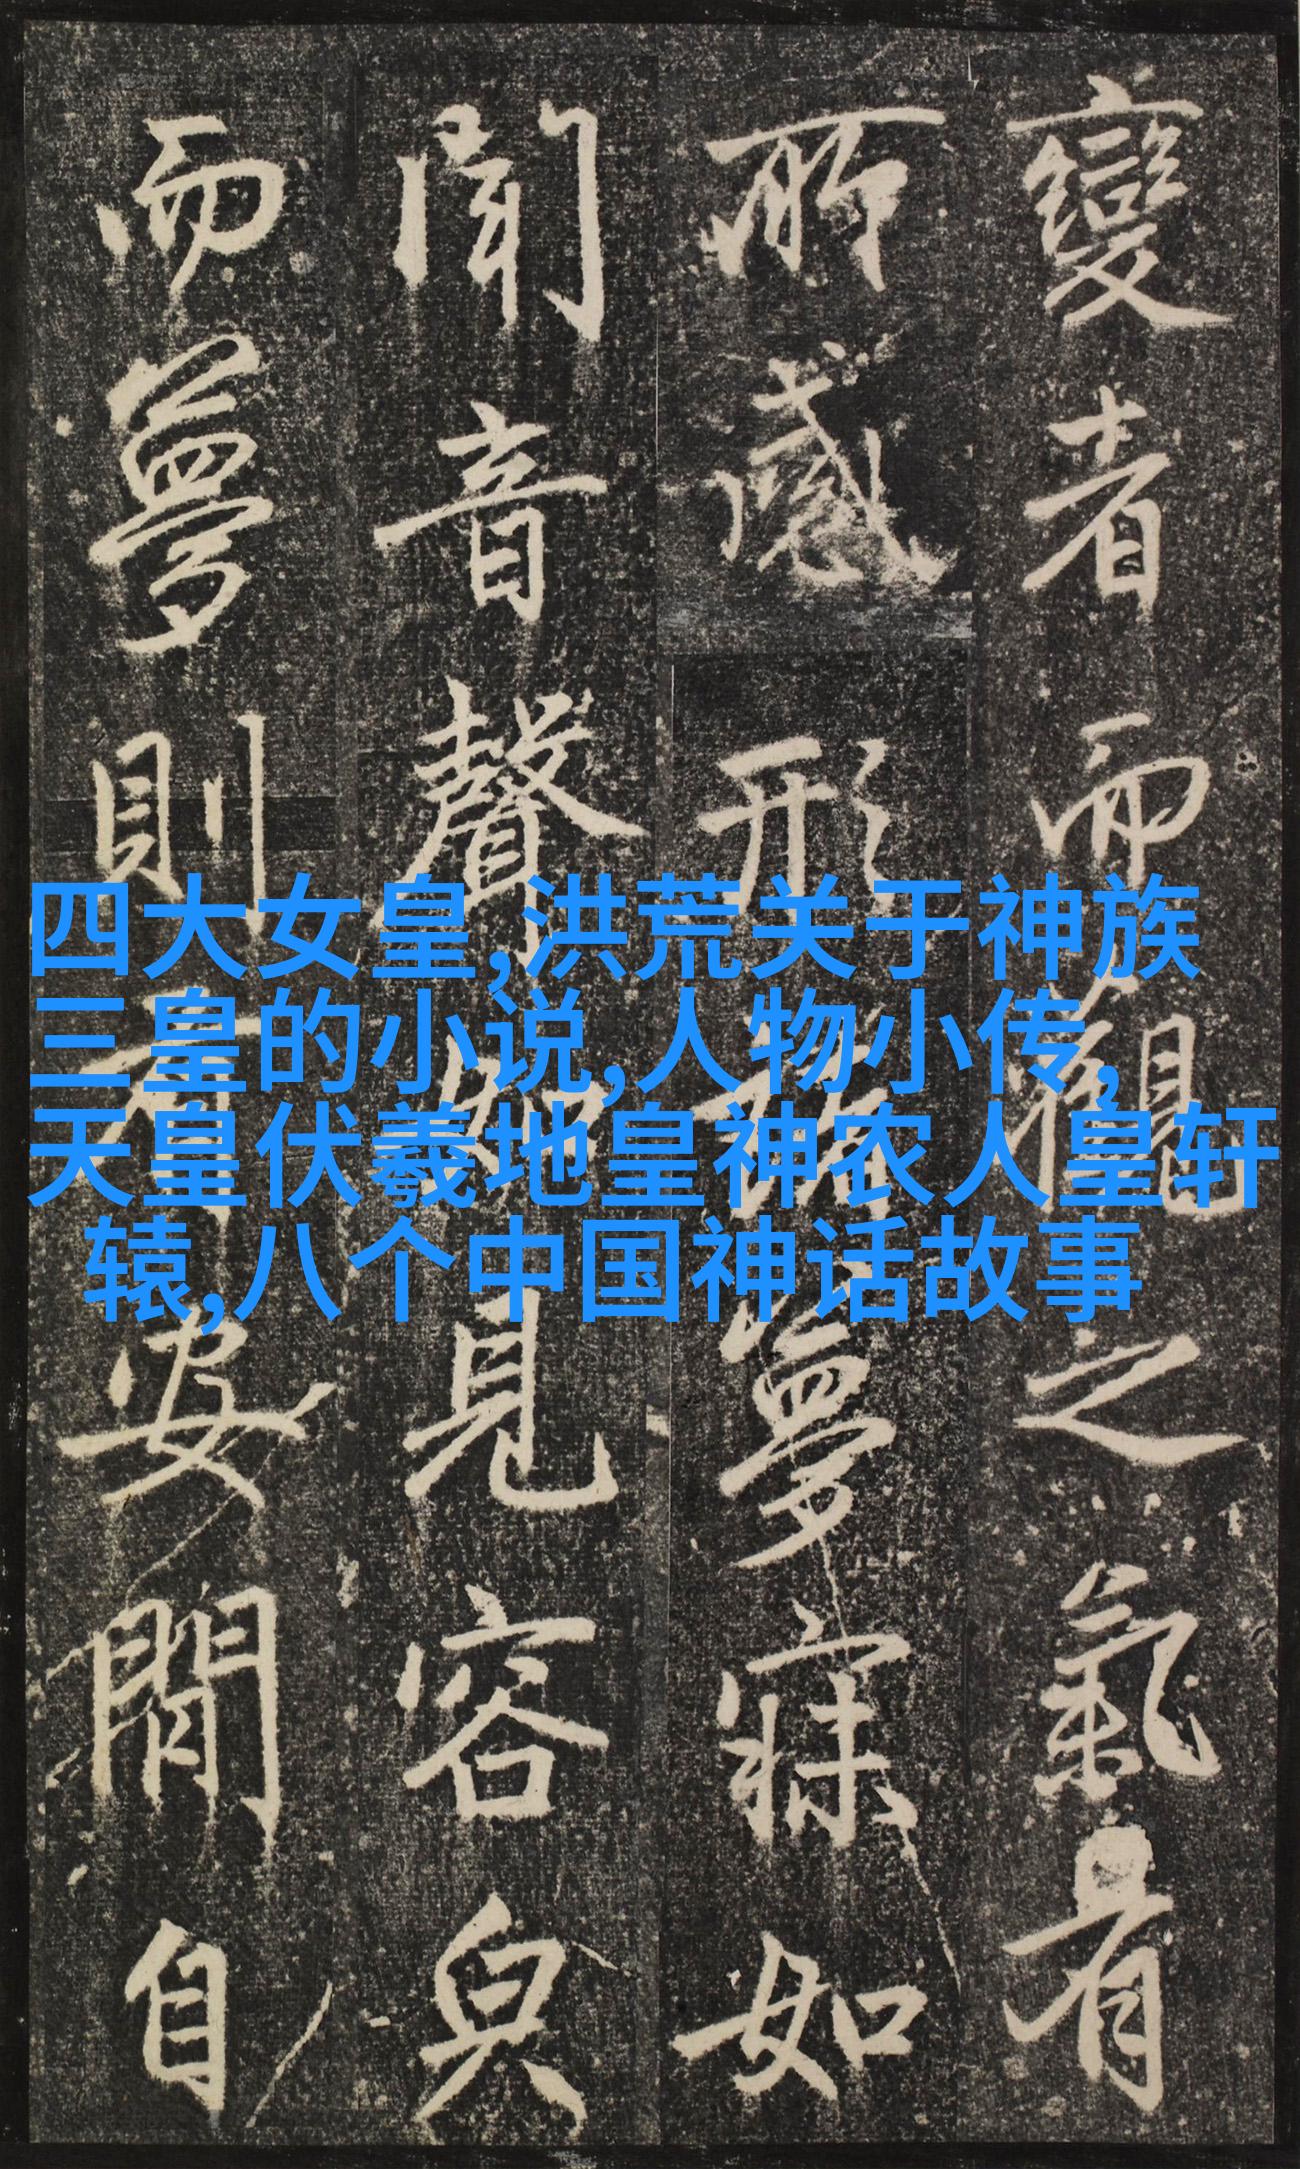 變者而之氣有
所感形夢寐如
聞音聲如見容皃
而夢則有安閒自
四大女皇,洪荒关于神族
三皇的小说,人物小传,
天皇伏羲地皇神农人皇轩
辕,八个中国神话故事